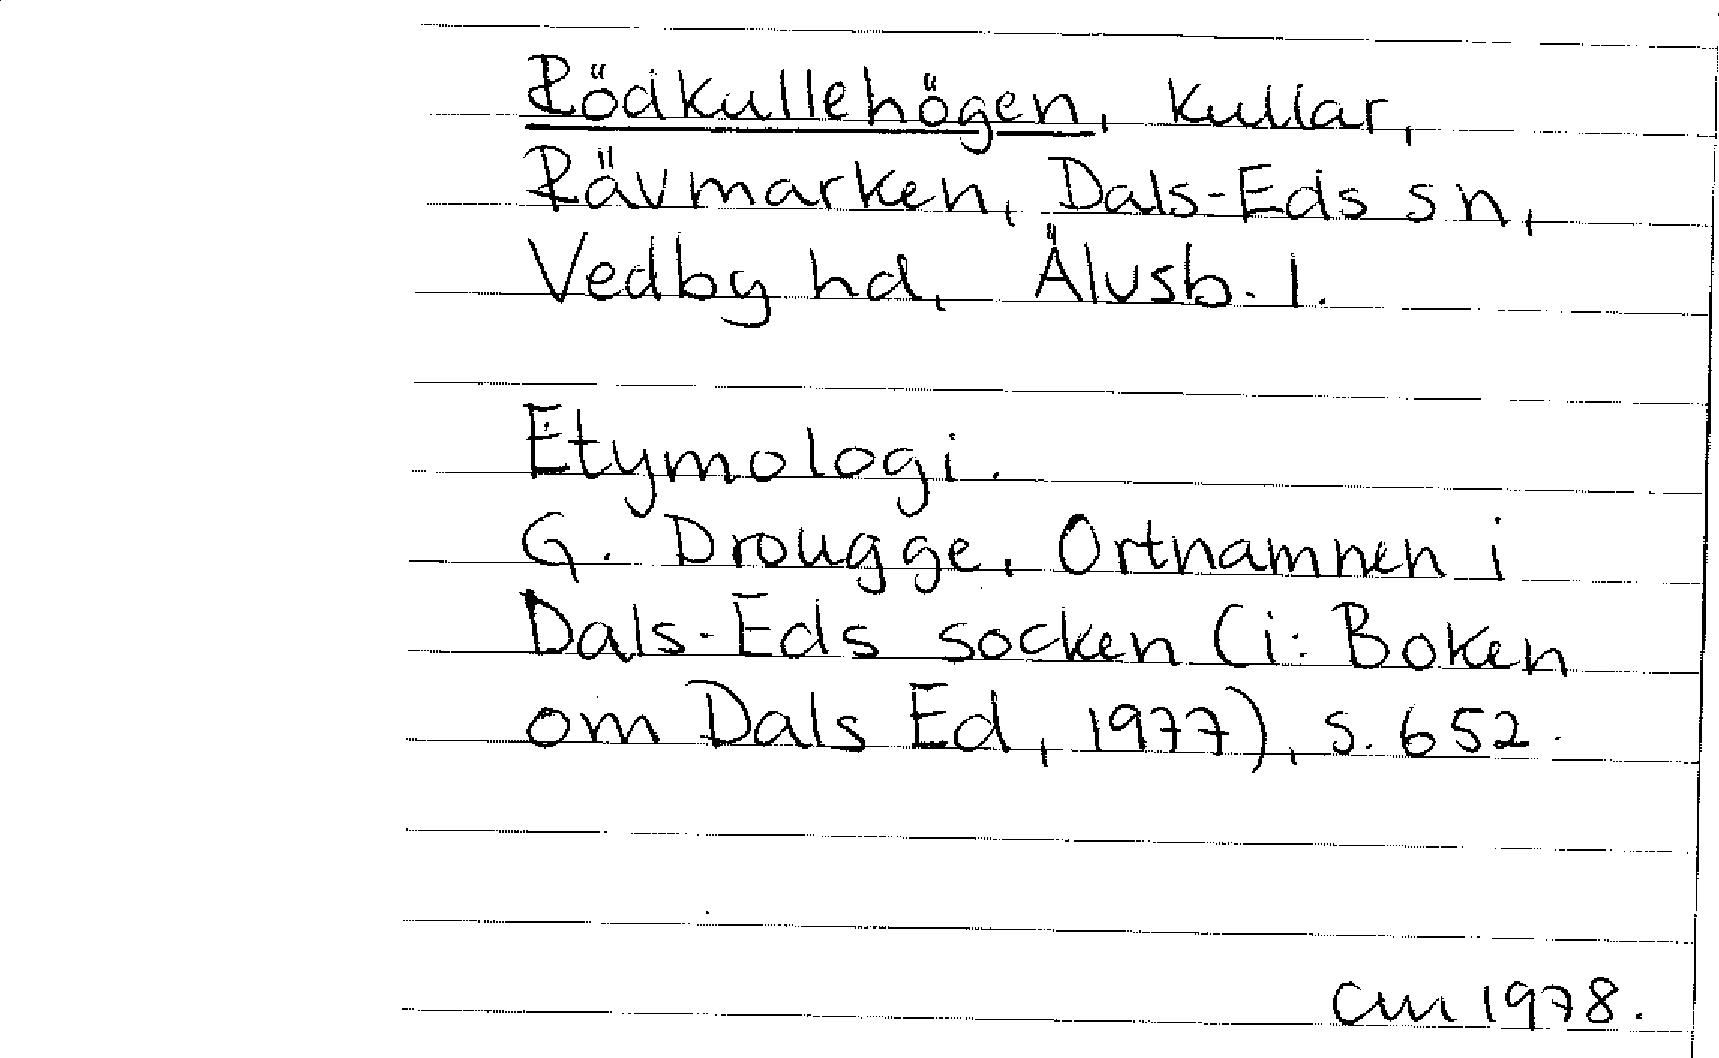 Rödkullehögen, kullar,
Rävmarken, Dals-Eds sn,
Vedby hd, Älvsb. l.
Etymologi.
G. Drougge, Ortnamnen i
Dals-Eds socken (i: Boken
om Dals Ed, 1977), s. 652.
CM 1978.